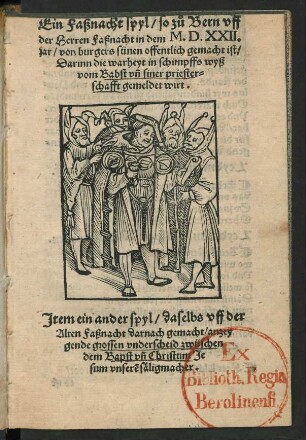 Ein Faßnacht spyl / so zů Bern vff
der Herren Faßnacht in dem M. D. XXII.
jar / von burgers sünen offentlich gemacht ist /
Darinn die warheyt in schimpffs wyß
vom Babst vñ siner priester-
schafft gemeldet wirt.
Item ein ander spyl / daselbs vff der
Alten Faßnacht darnach gemacht / anzey
gende grossen vnderscheid zwüschen
dem Bapst vñ Christum Je
sum vnserē säligmacher.
Ex
Biblioth. Regia
Berolinensi.